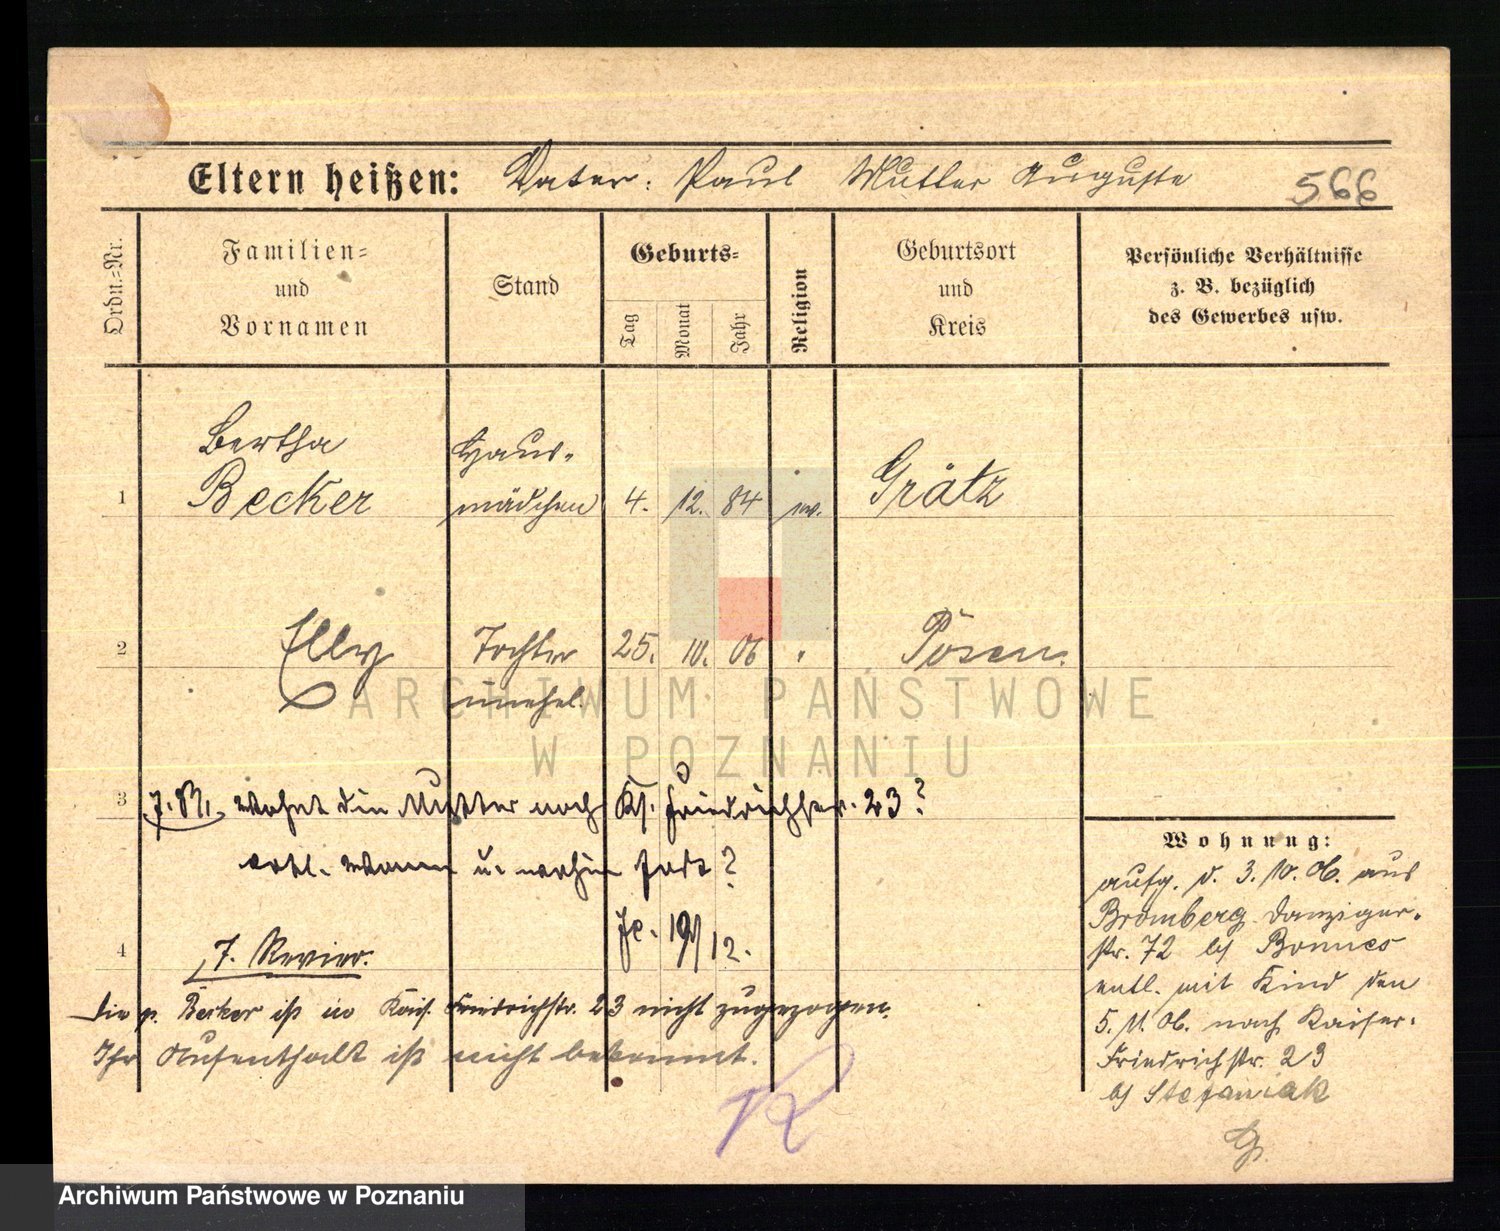 Eltern heißen: Vater: Paul Mutter Auguste 566
Ordn.-Nr.
Familien-
und
Vornamen
Stand
Geburts-
Tag
Monat
Jahr
Religion
Geburtsort
und
Kreis
Persönliche Verhältnisse
z. B. bezüglich
des Gewerbes usw.
Bertha Haus-
1 Becker mädchen 4. 12. 84 Grätz
2 Elly Tochter 25. 10. 06 " Posen.
unehel.
ARCHIWUM PAŃSTWOWE
W POZNANIU
3 7. R. Wohnt die Mutter noch Ks. Friedrichstr. 23?
evtl. wann u. wohin fort?
19/12.
4 7. Revier.
Die p. Becker ist in Kais. Friedrichstr. 23 nicht zugezogen.
Ihr Aufenthalt ist nicht bekannt.
Wohnung:
aufg. d. 3. 10. 06. aus
Bromberg Danziger-
str. 72 bj
entl. mit Kind den
5. 11. 06. nach Kaiser-
Friedrichstr. 23
bj Stefaniak
Archiwum Państwowe w Poznaniu